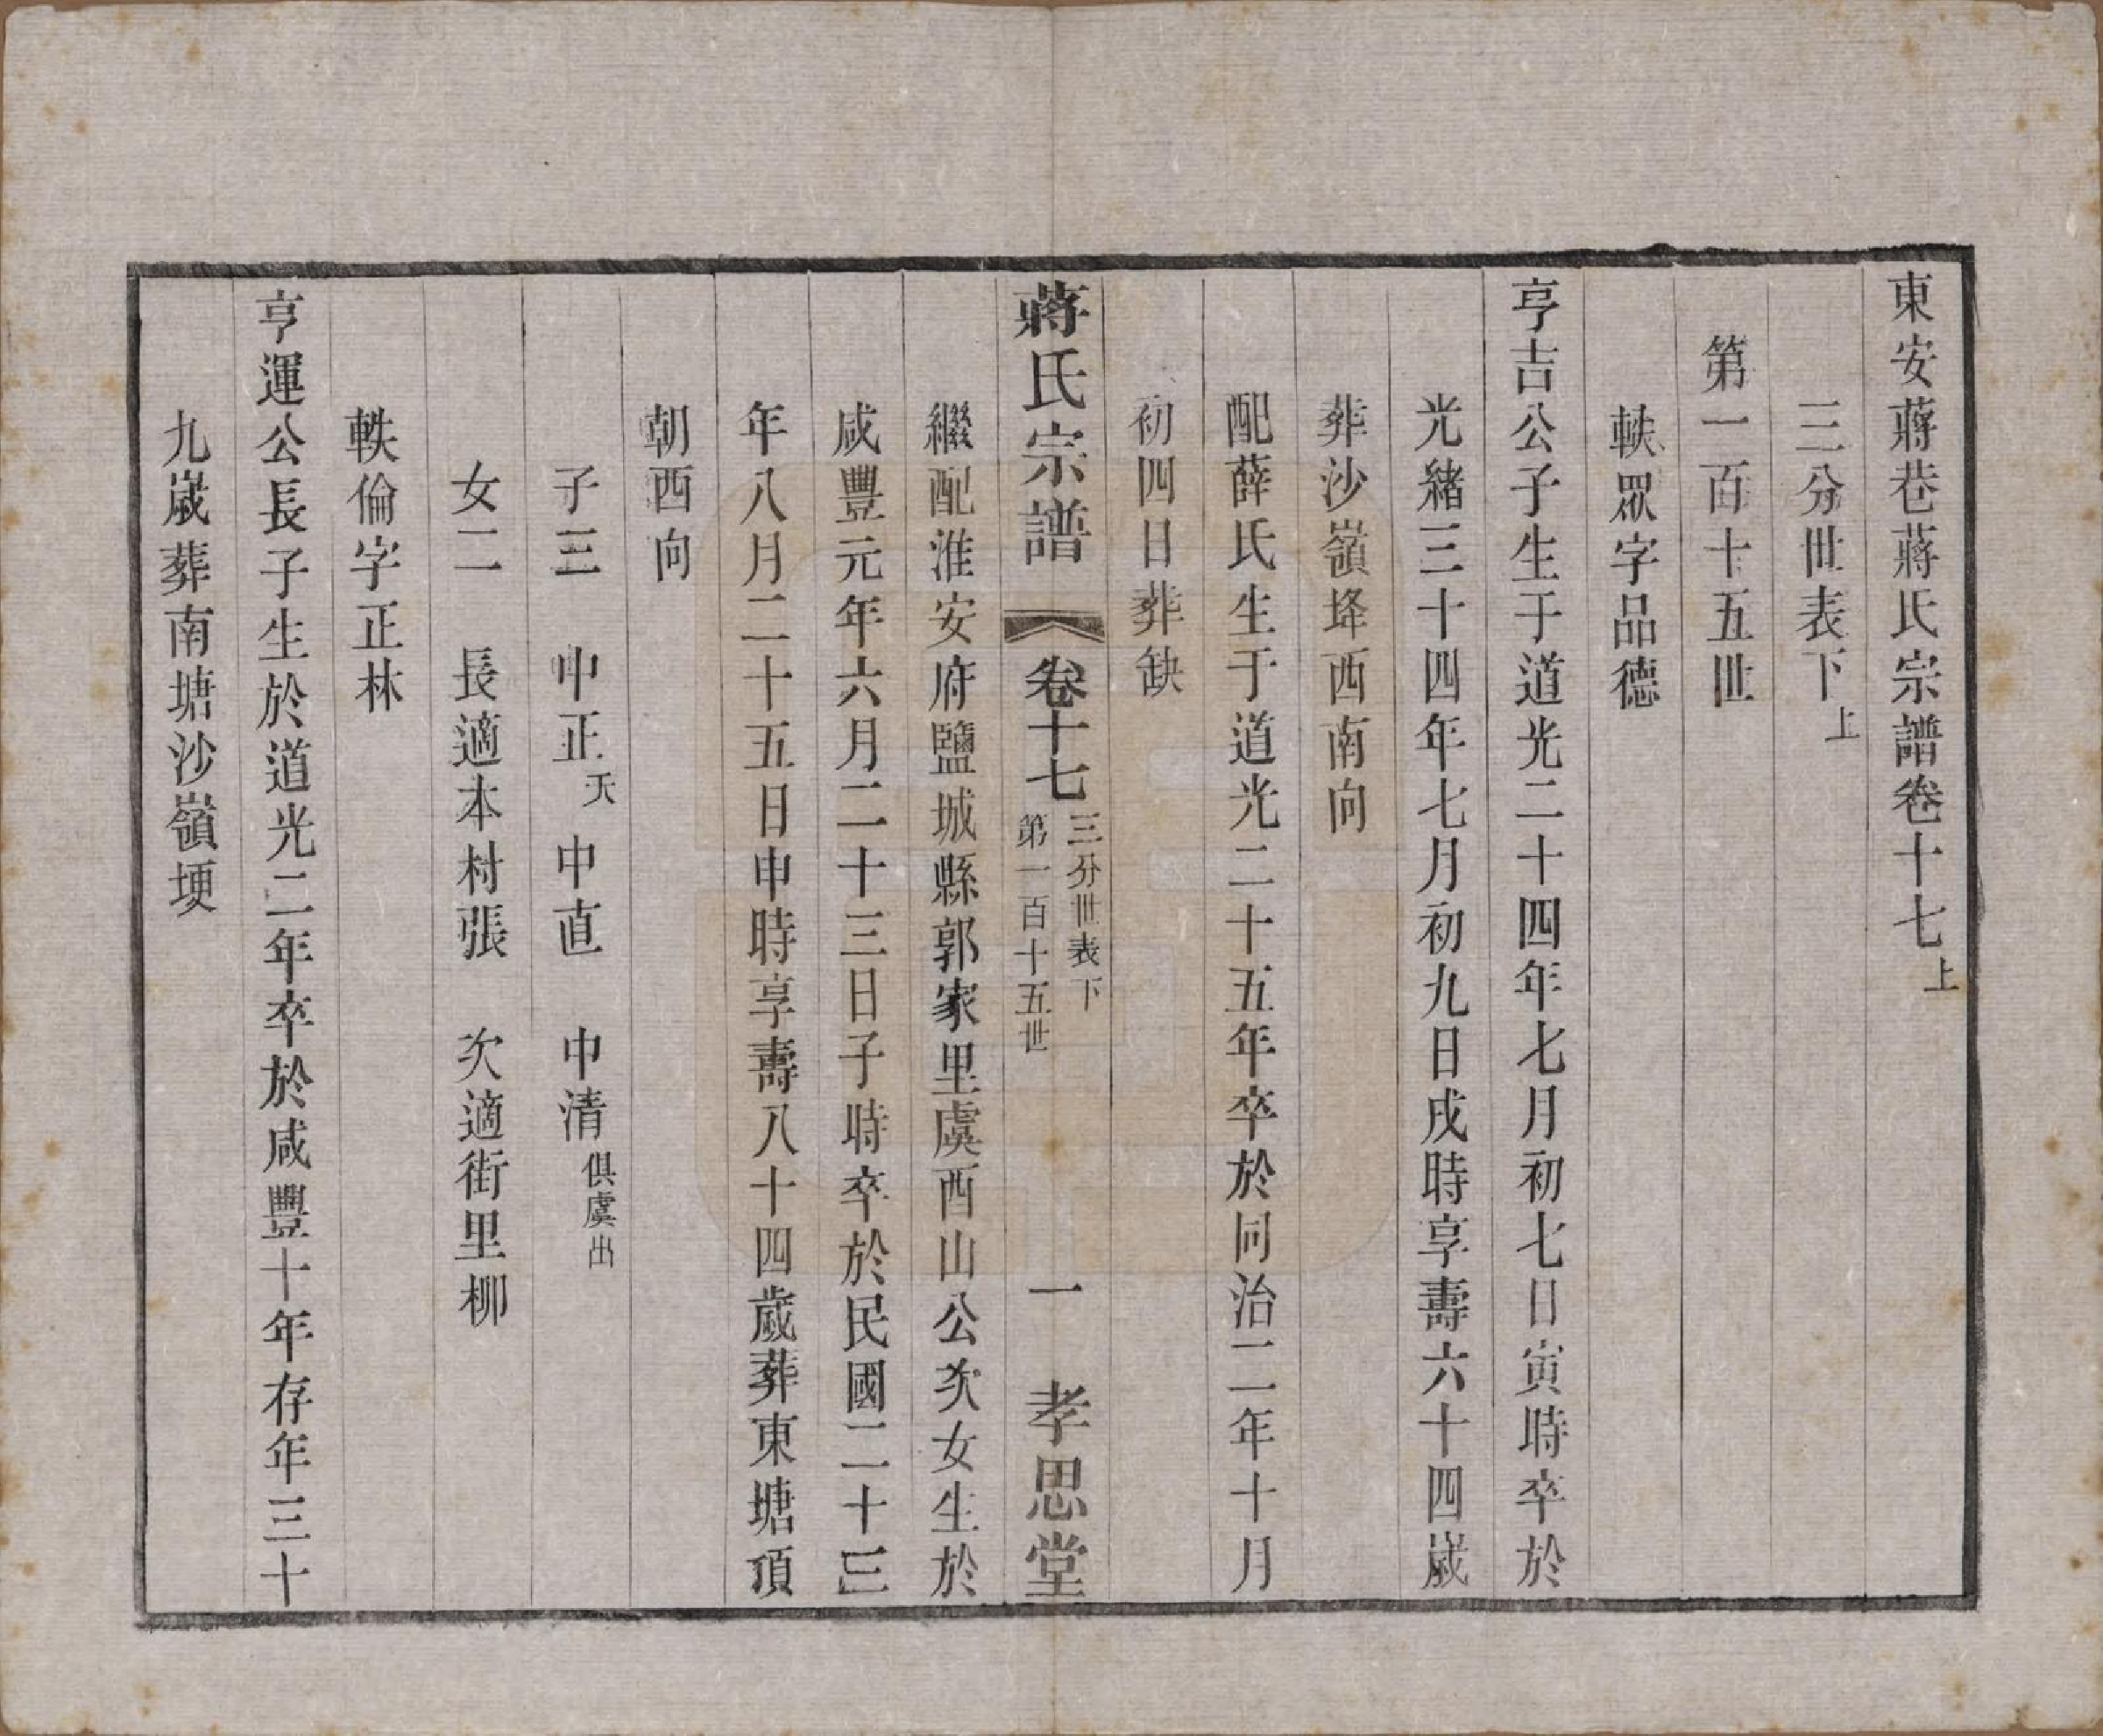 東安蔣巷蔣氏宗譜卷十七上
三分世表下上
第一百十五世
軼眾字品德
亨吉公子生于道光二十四年七月初七日寅時卒於
光緒三十四年七月初九日戌時享壽六十四歲
葬沙嶺垏西南向
配薛氏生于道光二十五年卒於同治二年十月
初四日葬缺
蔣氏宗譜 卷十七 三分世表下 第一百十五世 一 孝思堂
繼配淮安府鹽城縣郭家里虞西山公次女生於
咸豐元年六月二十三日子時卒於民國二十三
年八月二十五日申時享壽八十四歲葬東塘頂
朝西向
子三 中正天 中直 中清俱虞出
女二 長適本村張 次適街里柳
軼倫字正林
亨運公長子生於道光二年卒於咸豐十年存年三十
九歲葬南塘沙嶺埂